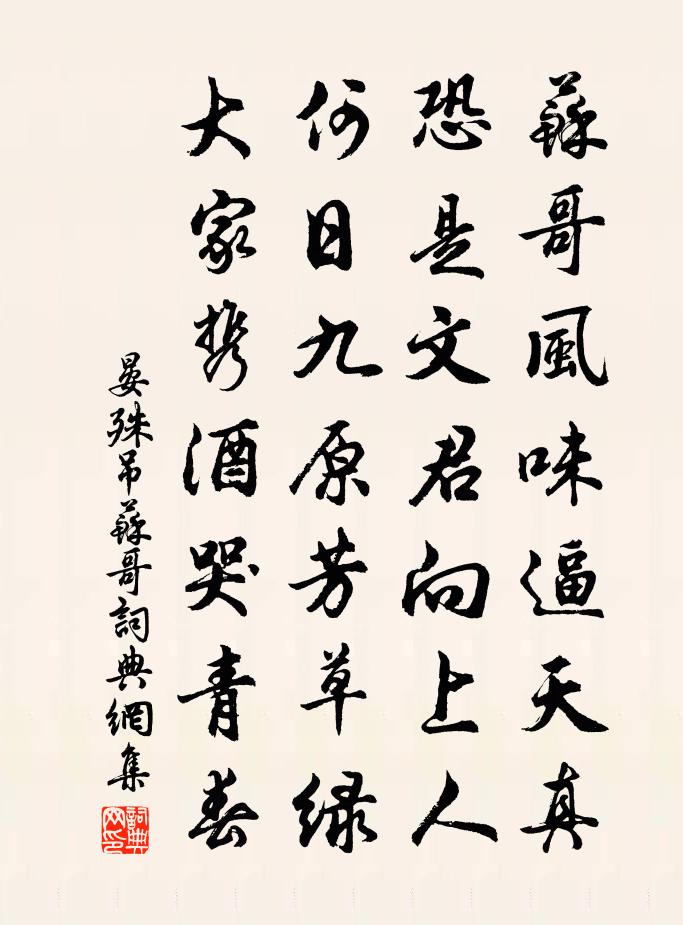 蘇哥風味逼天真
恐是文君向上人
何日九原芳草绿
大家携酒哭青春
晏殊吊蘇哥詞典網集
詞典網印